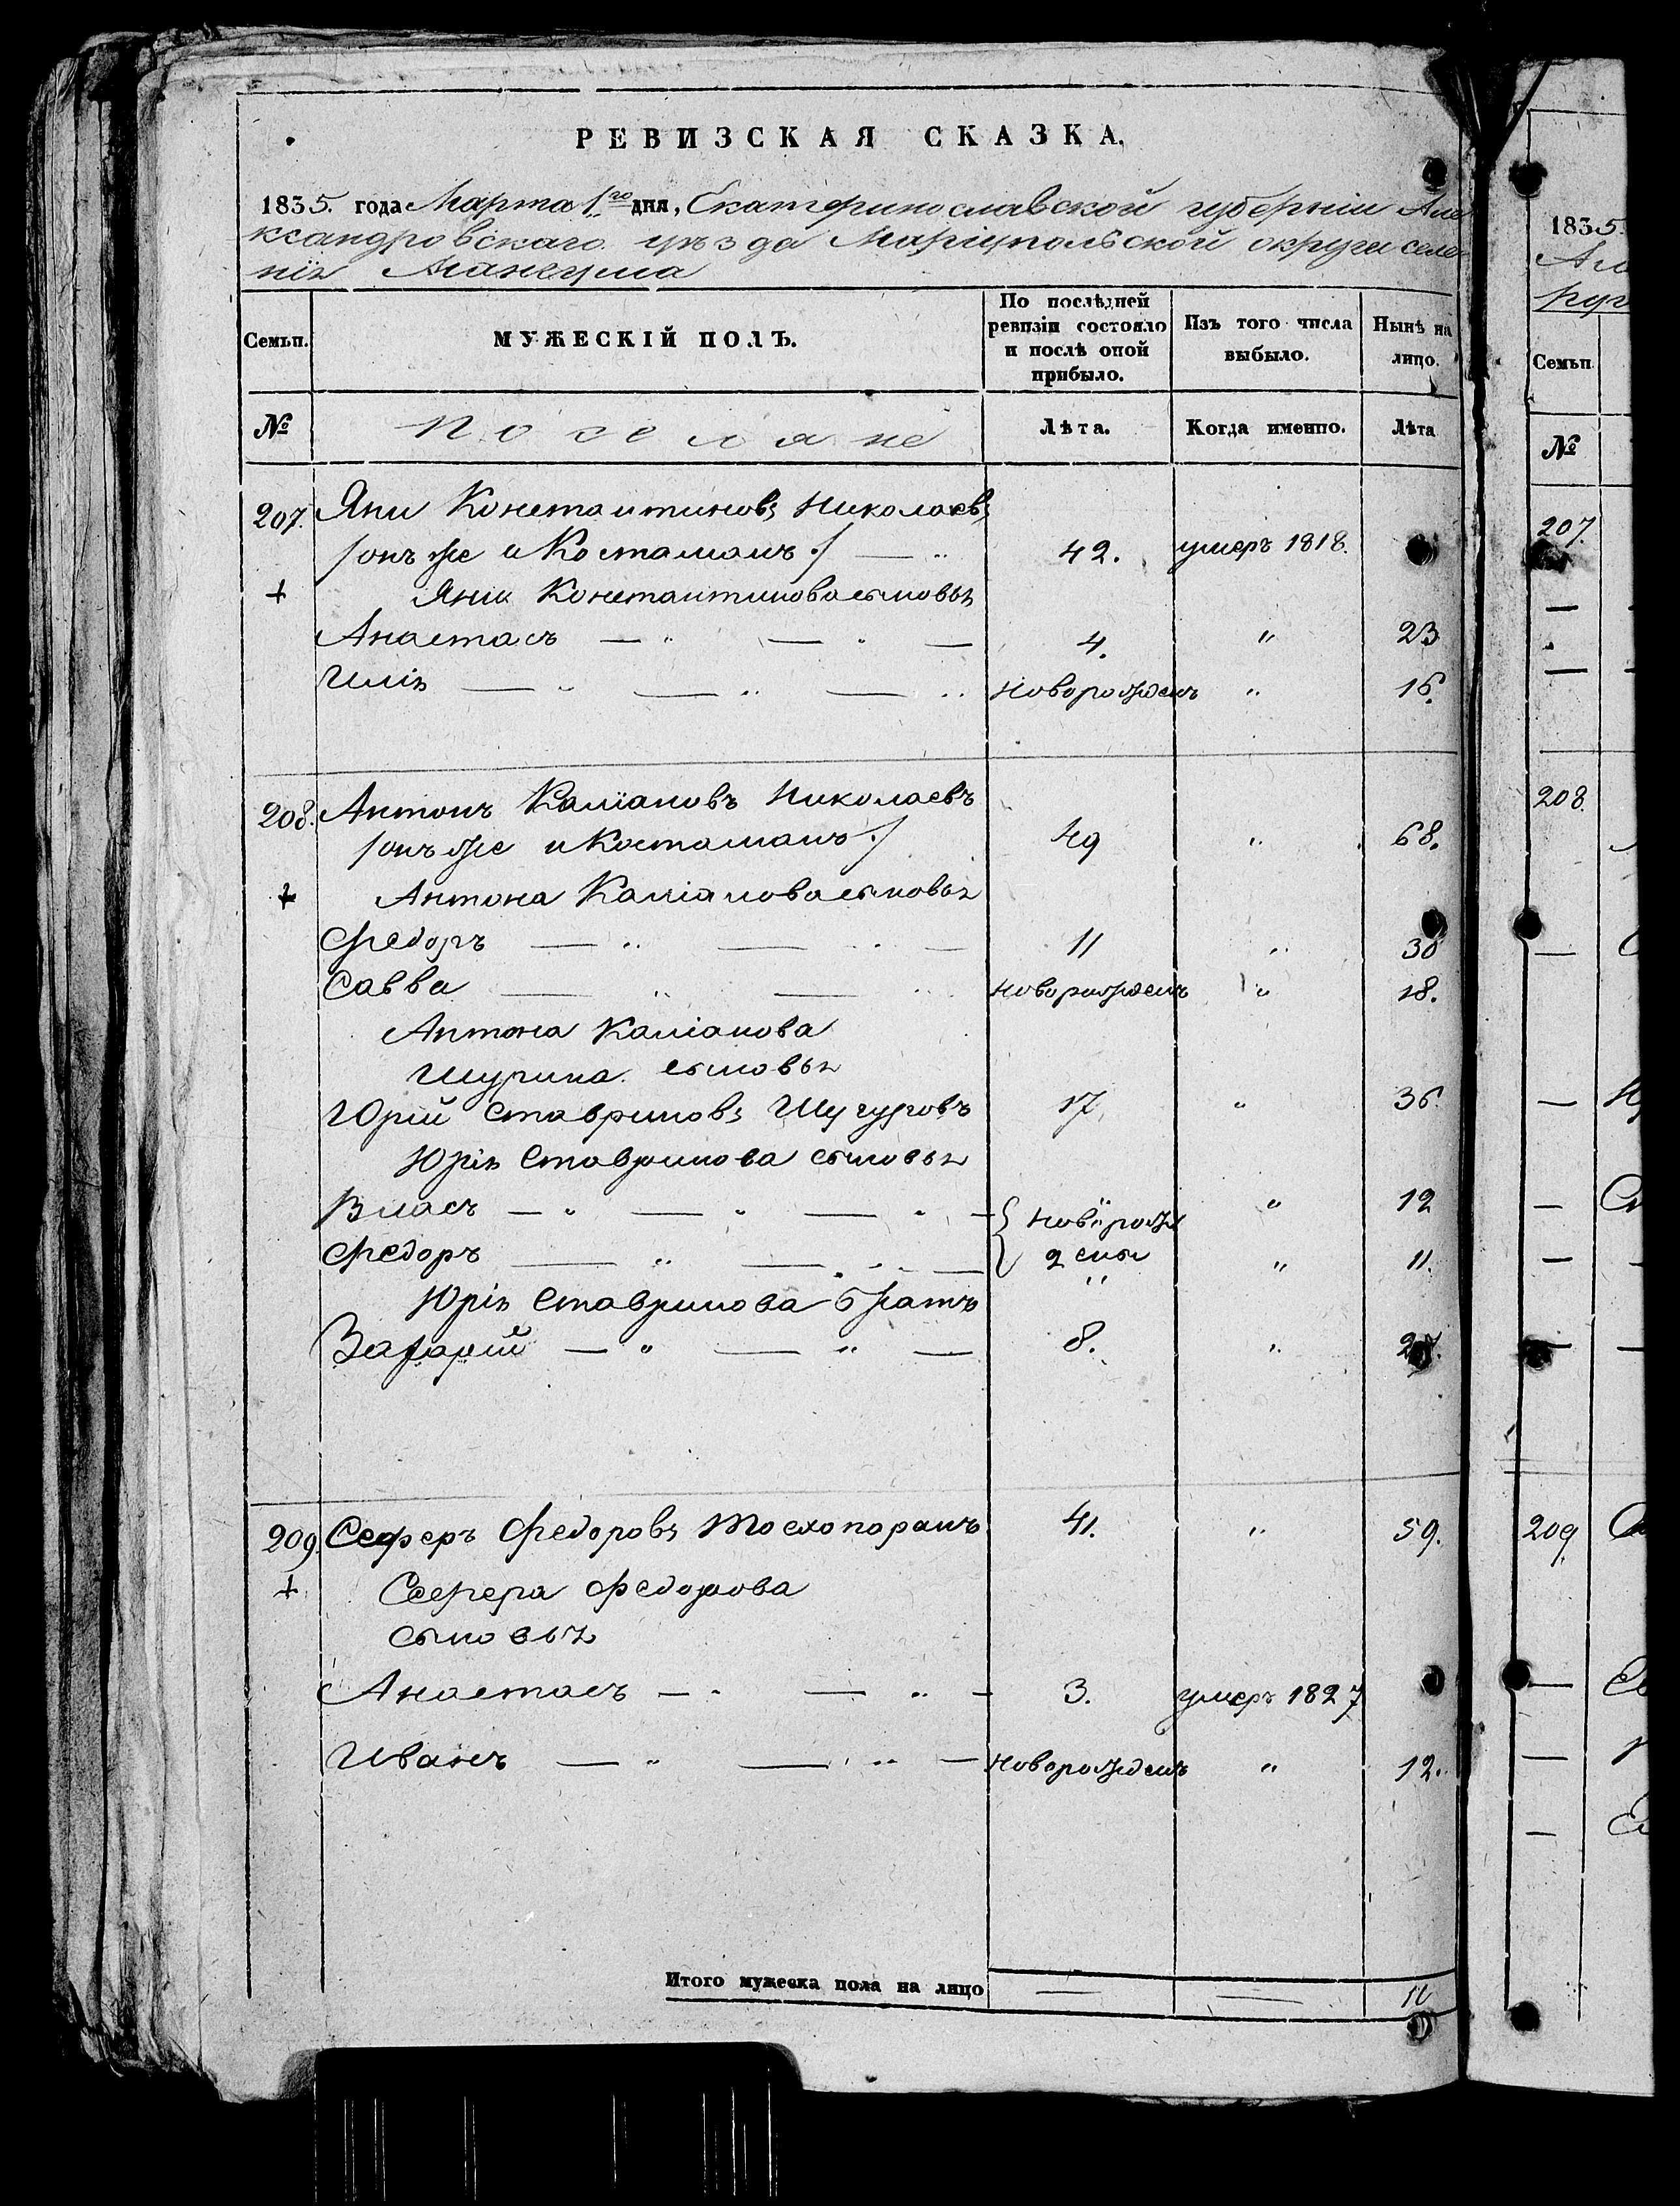 РЕВИЗСКАЯ СКАЗКА.
1835. года Марта 1го дня, Екатеринославской губернiи Але
ксандровскаго уѣзда Марiупольской округи селе
нiя Мангуша
Семьи.
МУЖЕСКIЙ ПОЛЪ.
По послѣдней ревизiи состояло и послѣ оной прибыло.
Изъ того числа выбыло.
Нынѣ на лицо.
№
Поселяне
Лѣта.
Когда именно.
Лѣта
207. Яни Константиновъ Николаевъ
/онъ же и Косташашъ/ — „ 42. умеръ 1818.
+ Яни Константинова сыновья
Анастасъ — „ — „ — 4. „ 23
Илiя — „ — „ — „ новорожденъ „ 16.
208. Антонъ Калiановъ Николаевъ
/онъ же и Косташашъ/ 49 „ 68.
+ Антона Калiанова сыновья
Федоръ — „ — „ — 11 „ 30
Савва — „ — „ новорожденъ „ 18.
Антона Калiанова
Шурина сыновья
Юрiй Ставриновъ 17. „ 36.
Юрiя Ставринова сыновья
Власъ — „ — „ — „ — { новорожд „ 12
Федоръ — „ — „ — 2 сыы „ 11.
Юрiя Ставринова братъ
Захарiй — „ — „ — 8. „ 27.
209. Сеферъ Федоровъ 41. „ 59.
+ Сефера Федорова
сыновья
Анастасъ — „ — „ — 3. умеръ 1827
Иванъ — „ — „ — новорожденъ „ 12.
Итого мужеска пола на лицо — — 11
1835.
Але
№
207.
208
209
Семьи